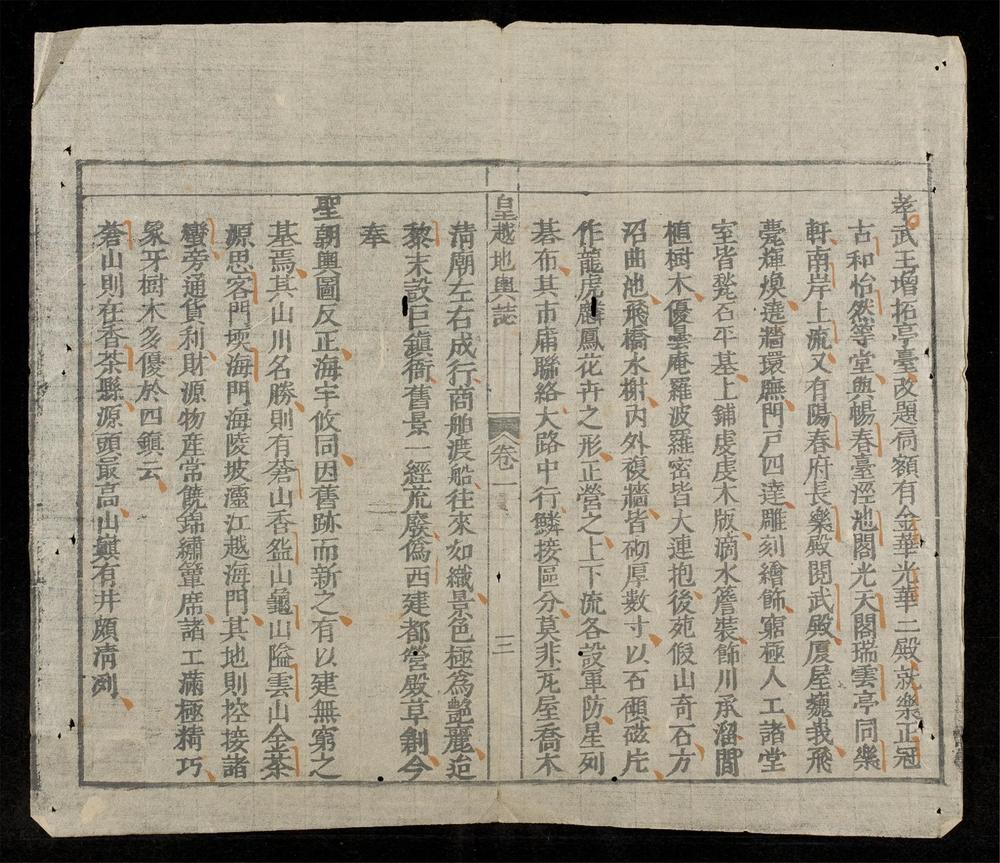 孝武王增拓亭臺改題扁額有金華光華二殿就樂正冠
古和怡然等堂與暢春臺澄池閣光天閣瑞雲亭同樂
軒南岸上流又有陽春府長樂殿閱武殿厦屋巍峩飛
甍輝煥遶牆環廡門戶四達雕刻繪飾窮極人工諸堂
室皆甃石平基上鋪虔虔木版滴水簷裝飾川承溜間
植樹木優曇庵羅波羅密皆大連抱後苑假山奇石方
沼曲池飛橋水榭內外複牆皆砌厚數寸以石傾磁片
作龍虎麟鳳花卉之形正營之上下流各設軍防星列
碁布其市庯聯絡大路中行鱗接區分莫非瓦屋喬木
皇越地輿誌 卷一 三
清廟左右成行商舶渡船往來如織景色極爲艷麗迨
黎末設巨鎮衙舊景一經荒廢僞西建都營殿草創今
奉
聖朝輿圖反正海宇攸同因舊跡而新之有以建無窮之
基焉其山川名勝則有蒼山香盌山龜山隘雲山金茶
源思客門堧海門海陵坡瀘江越海門其地則控接諸
蠻旁通貨利財源物產常饒錦繡簟席諸工滿極精巧
象牙樹木多優於四鎮云
蒼山則在香茶縣源頭最高山巔有井頗清冽